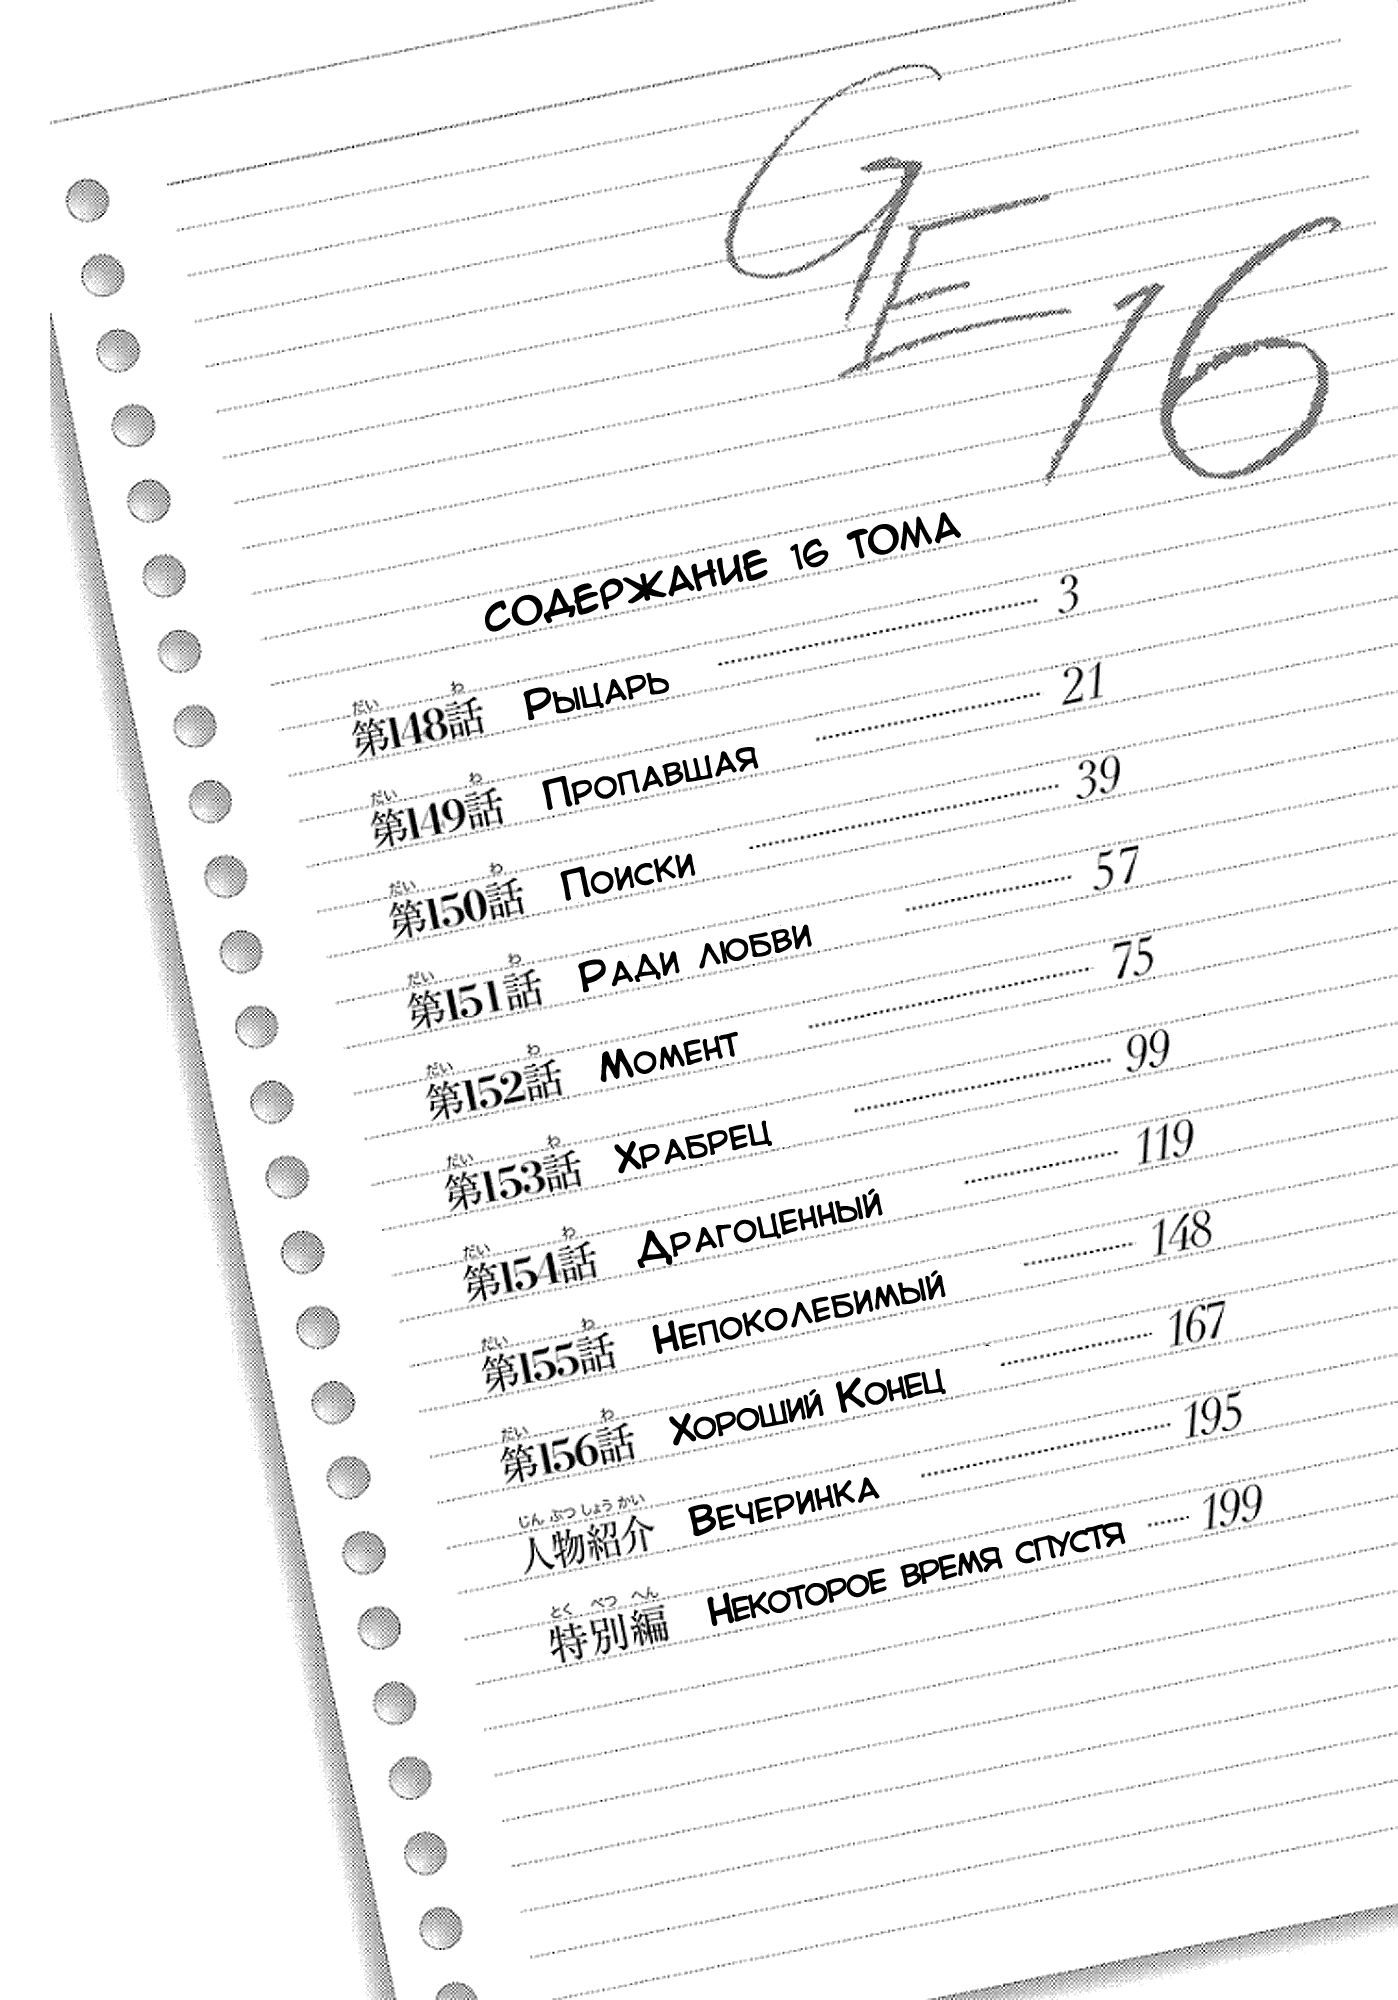 GE-16
СОДЕРЖАНИЕ 16 ТОМА
第148話 РЫЦАРЬ 3
第149話 ПРОПАВШАЯ 21
第150話 ПОИСКИ 39
第151話 РАДИ ЛЮБВИ 57
第152話 МОМЕНТ 75
第153話 ХРАБРЕЦ 99
第154話 ДРАГОЦЕННЫЙ 119
第155話 НЕПОКОЛЕБИМЫЙ 148
第156話 ХОРОШИЙ КОНЕЦ 167
人物紹介 ВЕЧЕРИНКА 195
特別編 НЕКОТОРОЕ ВРЕМЯ СПУСТЯ 199